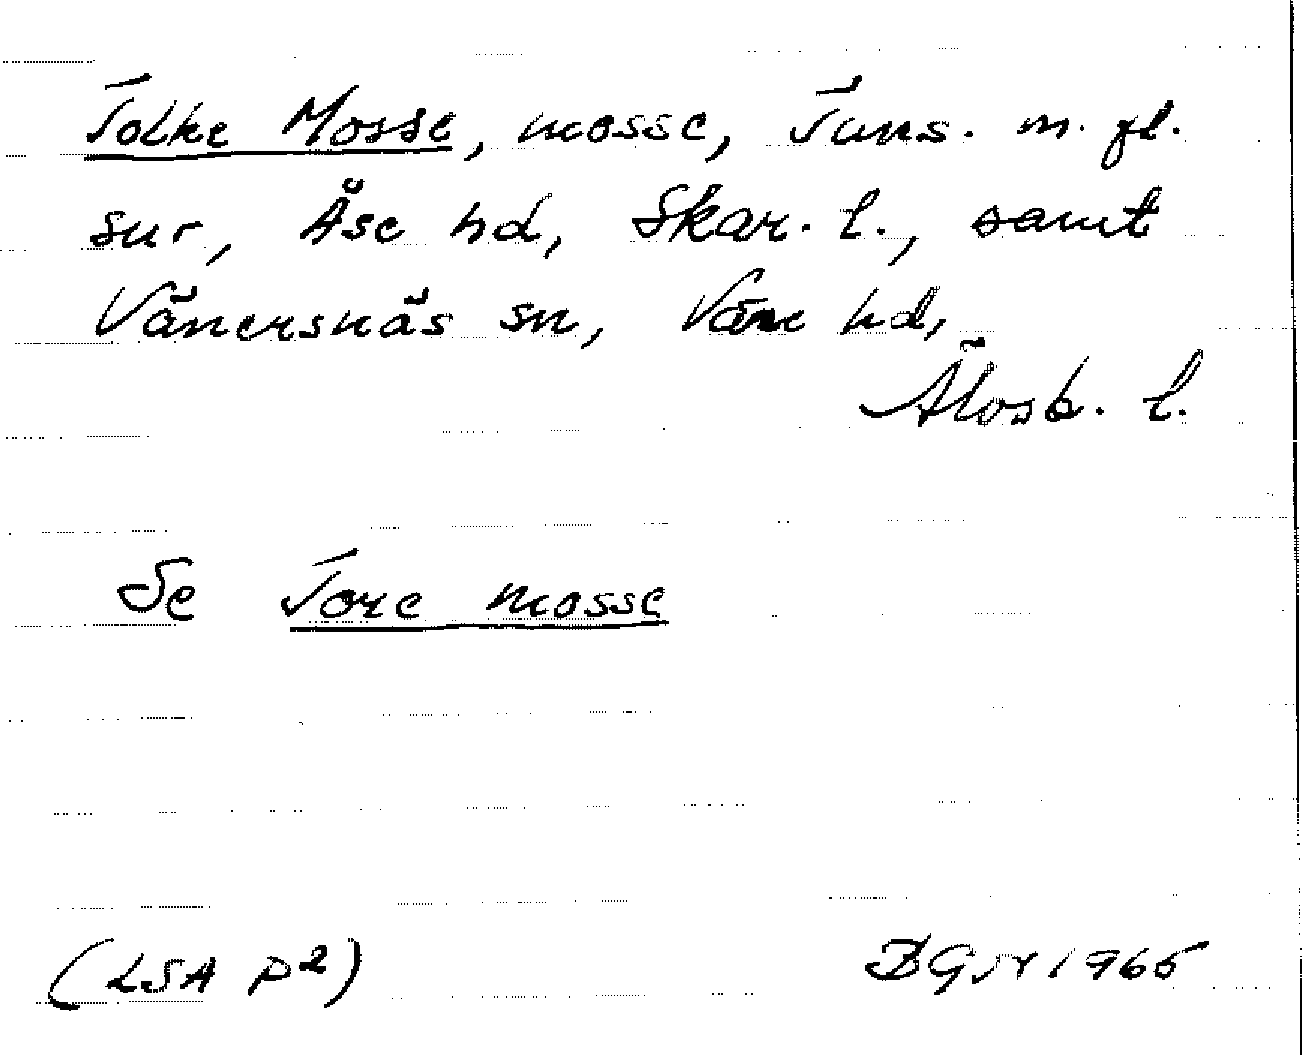 Tolke Mosse, mosse, Tuns. m. fl.
snr, Åse hd, Skar. l., samt
Vänersnäs sn, Väne hd,
Älvsb. l.
Se Tore mosse
(LSA P2) 1965